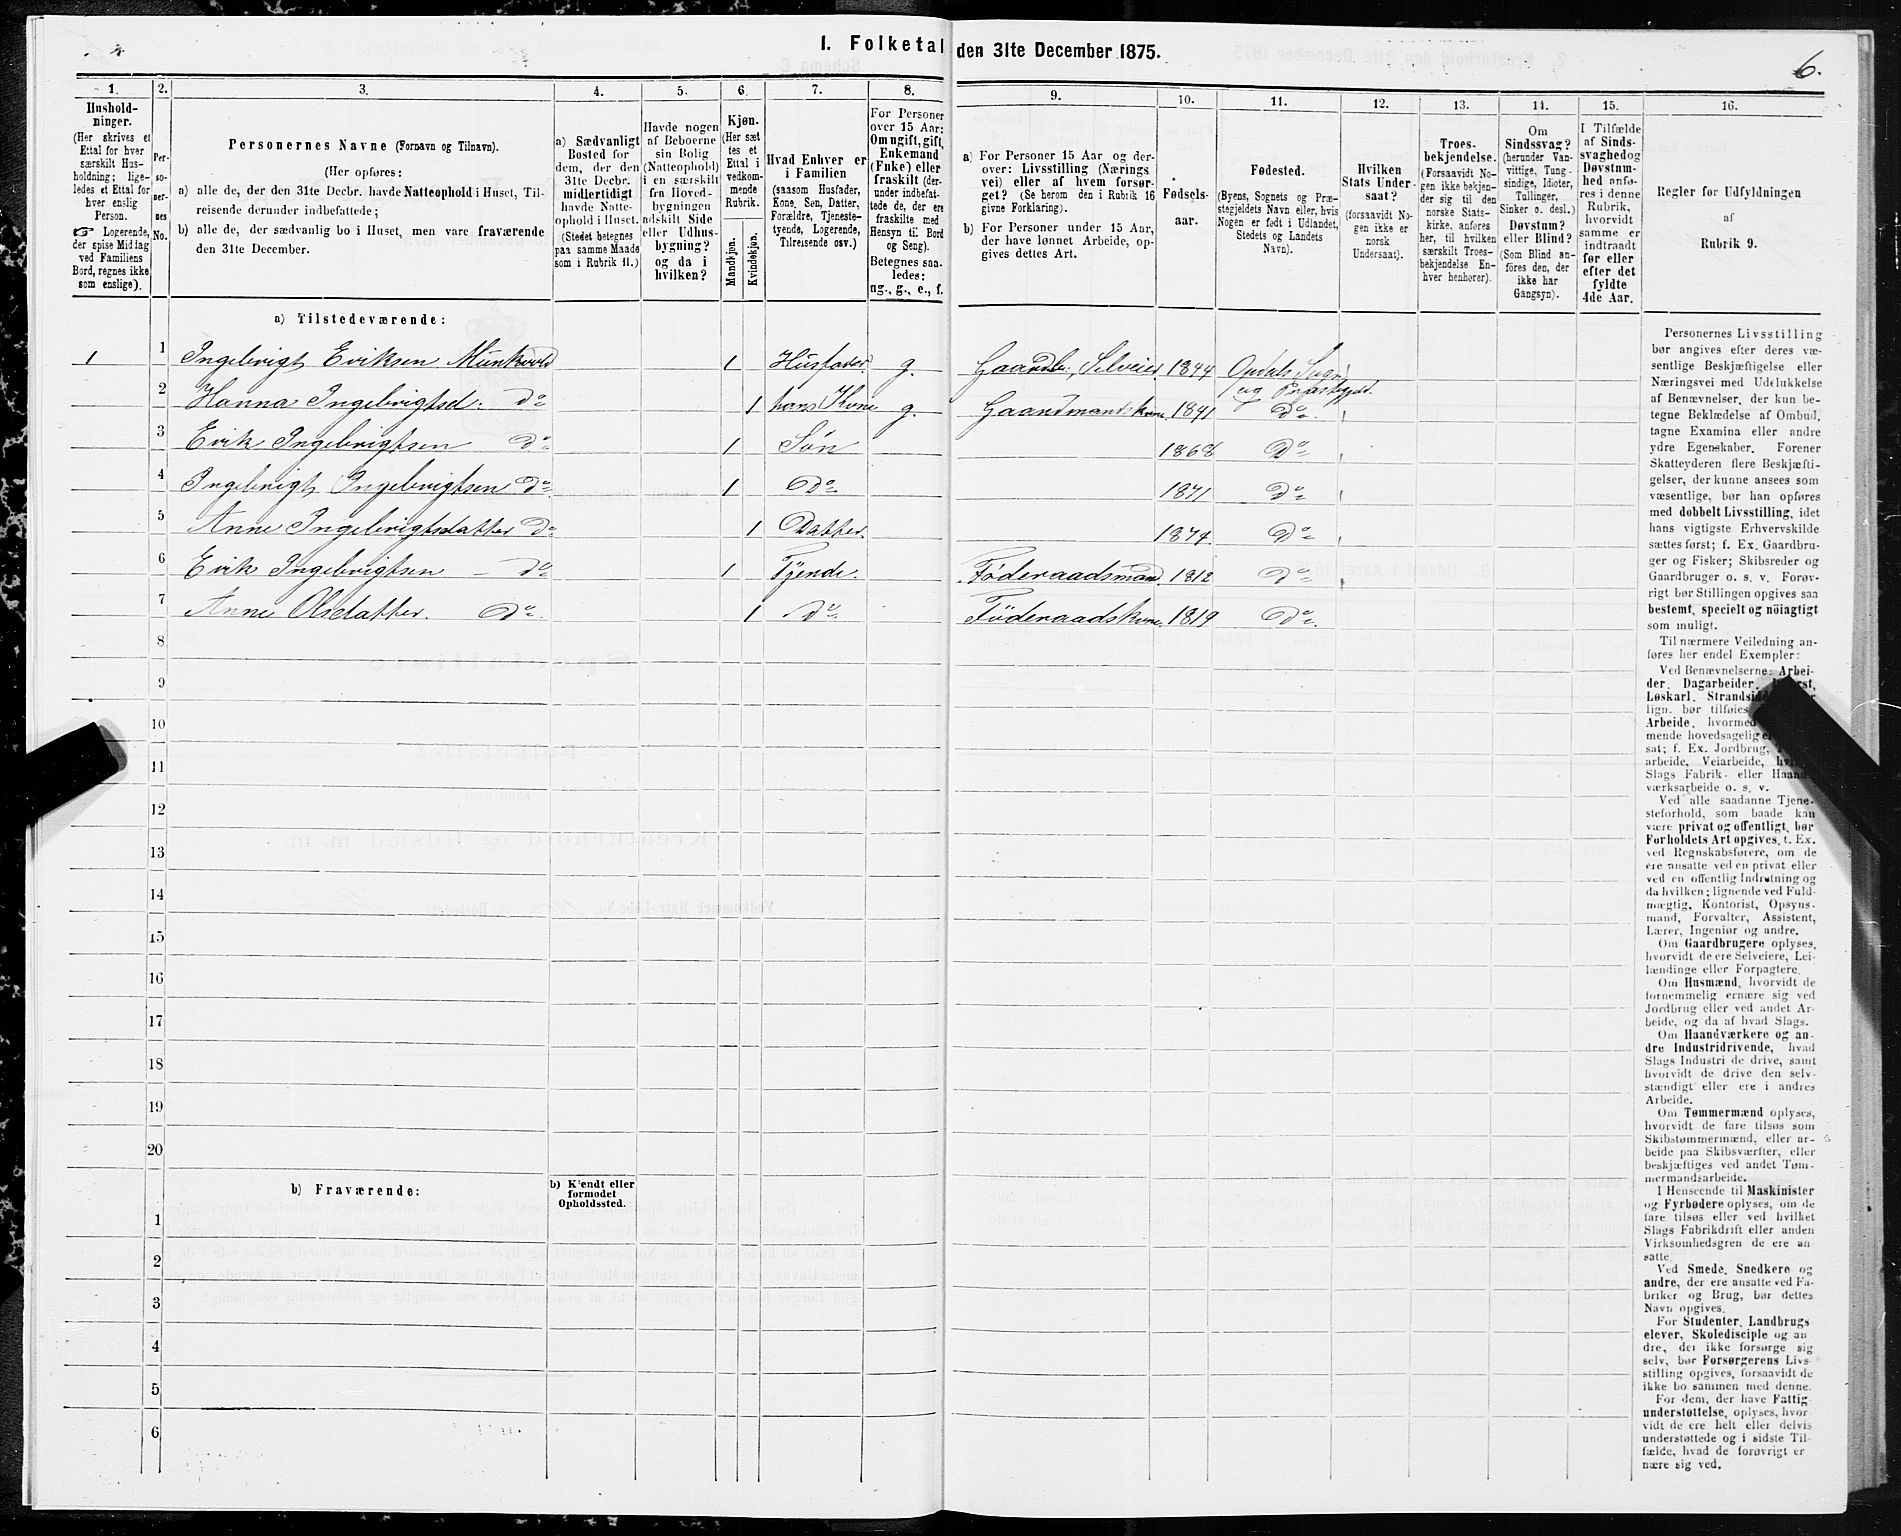 1. Folketal den 31te December 1875.
6.
1. 2. 3. 4. 5. 6. 7. 8. 9. 10. 11. 12. 13. 14. 15. 16.
Hushold-
ninger.
(Her skrives et
Ettal for hver
særskilt Hus-
holdning; lige-
ledes et Ettal for
hver enslig
Person.
☞ Logerende,
der spise Middag
ved Familiens
Bord, regnes ikke
som enslige).
Per-
so-
ner-
nes
No.
Personernes Navne (Fornavn og Tilnavn).
(Her opføres:
a) alle de, der den 31te Decbr. havde Natteophold i Huset, Til-
reisende derunder indbefattede;
b) alle de, der sædvanlig bo i Huset, men vare fraværende
den 31te December.
a) Sædvanligt
Bosted for
dem, der den
31te Decbr.
midlertidigt
havde Natte-
ophold i Huset.
(Stedet betegnes
paa samme Maade
som i Rubrik 11.)
Havde nogen
af Beboerne
sin Bolig
(Natteophold)
i en særskilt
fra Hoved-
bygningen
adskilt Side
eller Udhus-
bygning?
og da i
hvilken?
Kjøn.
(Her sæt
tes et
Ettal i
vedkom-
mende
Rubrik.
Mandkjøn.
Kvindekjøn.
Hvad Enhver er
i Familien
(saasom Husfader,
Kone, Søn, Datter,
Forældre, Tjeneste-
tyende, Logerende,
Tilreisende osv.)
For Personer
over 15 Aar:
Om ugift, gift,
Enkemand
(Enke) eller
fraskilt (der-
under indbefat-
tede de, der ere
fraskilte med
Hensyn til Bord
og Seng).
Betegnes saa-
ledes:
ug., g., e., f.
a) For Personer 15 Aar og der-
over: Livsstilling (Nærings
vei) eller af hvem forsør-
get? (Se herom den i Rubrik 16
givne Forklaring).
b) For Personer under 15 Aar,
der have lønnet Arbeide, op-
gives dettes Art.
Fødsels-
aar.
Fødested.
(Byens, Sognets og Præ-
stegjeldets Navn eller, hvis
Nogen er født i Udlandet,
Stedets og Landets
Navn).
Hvilken
Stats Under-
saat?
(forsaavidt No-
gen ikke er
norsk
Undersaat).
Troes-
bekjendelse.
(Forsaavidt No-
gen ikke bekjen-
der sig til den
norske Stats-
kirke, anføres
her, til hvilken
særskilt Troes-
bekjendelse En-
hver henhører).
Om
Sindssvag?
(herunder Van-
vittige, Tung-
sindige, Idioter,
Tullinger,
Sinker o. desl.)
Døvstum?
eller Blind?
(Som Blind an-
føres den, der
ikke har
Gangsyn).
I Tilfælde
af Sinds-
svaghed og
Døvstum-
hed anfø-
res i denne
Rubrik,
hvorvidt
samme er
indtraadt
før eller
efter det
fyldte
4de Aar.
Regler før Udfyldningen
af
Rubrik 9.
a) Tilstedeværende:
1 1 Ingebrigt Eriksen Munkvold 1 Husfader g. Gaardbr., Selveier 1844 Opdals Sogn
og Præstegjeld.
2 Hanna Ingebrigtsd: Do 1 hans Kone g. Gaardmandskone 1841 Do.
3 Erik Ingebrigtsen Do 1 Søn 1868 Do
4 Ingebrigt Ingebrigtsen Do. 1 Do 1871 Do
5 Anne Ingebrigtsdatter Do 1 Datter. 1874. Do
6 Erik Ingebrigtsen — Do 1 Tyende. Føderaadsmand 1812 Do
7 Anne Olsdatter. Do. 1 Do Føderaadskone. 1819 Do.
8
9
10
11
12
13
14
15
16
17
18
19
20
b) Fraværende:
b) Kjendt eller
formodet
Opholdssted.
1
2
3
4
5
6
Personernes Livsstilling
bør angives efter deres væ-
sentlige Beskjæftigelse eller
Næringsvei med Udelukkelse
af Benævnelser, der kun be-
tegne Beklædelse af Ombud,
tagne Examina eller andre
ydre Egenskaber. Forener
Skatteyderen flere Beskjæfti-
gelser, der kunne ansees som
væsentlige, bør han opføres
med dobbelt Livsstilling, idet
hans vigtigste Erhvervskilde
sættes først; f. Ex. Gaardbru-
ger og Fisker; Skibsreder og
Gaardbruger o. s. v. Forøv-
rigt bør Stillingen opgives saa
bestemt, specielt og nöiagtigt
som muligt.
Til nærmere Veiledning an-
føres her endel Exempler:
Ved Benævnelserne: Arbei-
der, Dagarbeider,
Løskarl,
lign. bør tilføies
Arbeide, hvormed
mende hovedsagelig
sat; f. Ex. Jordbrug,
arbeide, Veiarbeide,
Slags Fabrik- eller Haand-
værksarbeide o. s. v.
Ved alle saadanne Tjene-
steforhold, som baade kan
være privat og offentligt, bør
Forholdets Art opgives, t. Ex.
ved Regnskabsførere, om de
ere ansatte ved en privat eller
ved en offentlig Indretning og
da hvilken; lignende ved Fuld-
mægtig, Kontorist, Opsyns-
mand, Forvalter, Assistent,
Lærer, Ingeniør og andre.
Om Gaardbrugere oplyses,
hvorvidt de ere Selveiere, Lei-
lændinge eller Forpagtere.
Om Husmænd, hvorvidt de
fornemmelig ernære sig ved
Jordbrug eller ved andet Ar-
beide, og da af hvad Slags.
Om Haandværkere og an-
dre Industridrivende, hvad
Slags Industri de drive, samt
hvorvidt de drive den selv-
stændigt eller ere i andres
Arbeide.
Om Tømmermænd oplyses,
hvorvidt de fare tilsøs som
Skibstømmermænd, eller ar-
beide paa Skibsværfter, eller
beskjæftiges ved andet Tøm-
mermandsarbeide.
I Henseende til Maskinister
og Fyrbødere oplyses, om de
fare tilsøs eller ved hvilket
Slags Fabrikdrift eller anden
Virksomhedsgren de ere an-
satte.
Ved Smede, Snedkere og
andre, der ere ansatte ved Fa-
briker og Brug, bør dettes
Navn opgives.
For Studenter, Landbrugs
elever, Skoledisciple og an
dre, der ikke forsørge sig
selv, bør Forsørgerens Livs
stilling opgives, forsaavidt de
ikke bo sammen med denne.
For dem, der have Fattig
understøttelse, oplyses, hvor
vidt de ere helt eller delvis
understøttede og i sidste Til-
fælde, hvad de forøvrigt er
nære sig ved.